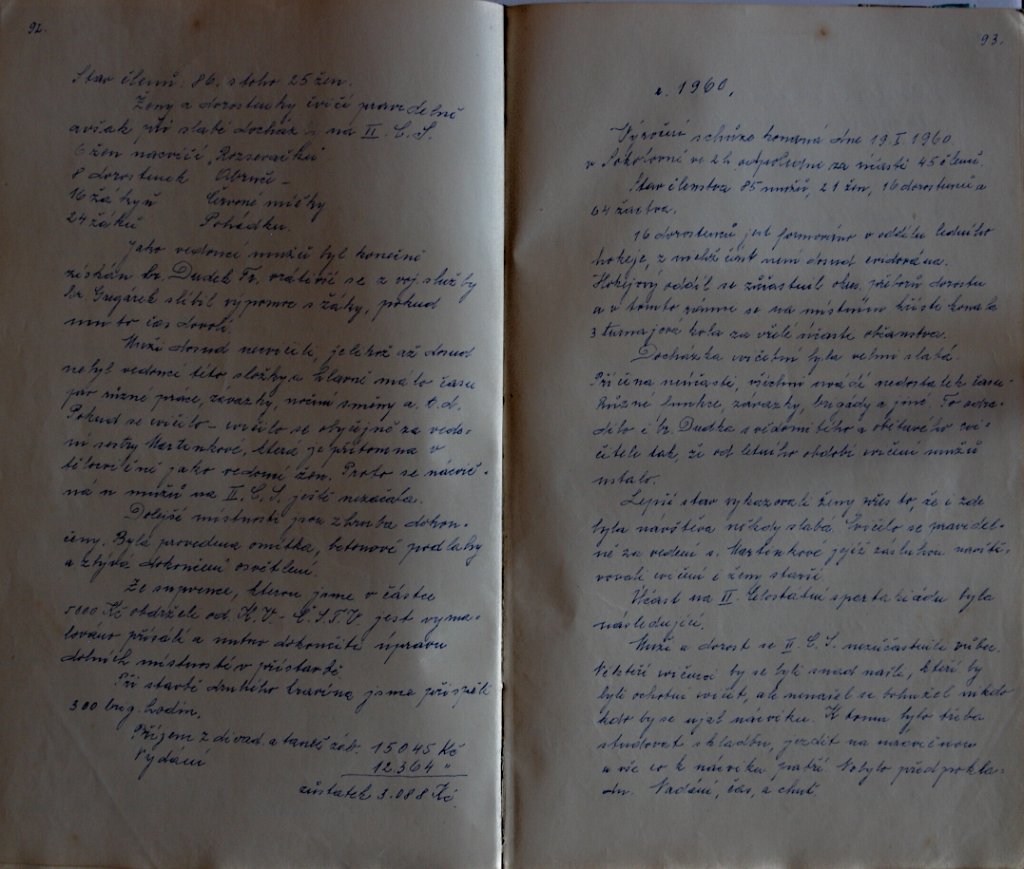 92.
Stav členů: 86. z toho 25 žen.
Ženy a dorostenky cvičí pravidelně
avšak při slabé docház na II. C. S.
6 žen nacvičí „Rozsevačku"
8 dorostenek Obruče –
16 žákyň Červené míčky
24 žáků Pohádku.
Jako vedoucí mužů byl konečně
získán br. Dudek Fr. vrátivší se z voj. služby
Br. Gregárek slíbil výpomoc s žáky, pokud
mu to čas dovolí.
Muži dosud necvičili, jelikož až dosud
nebyl vedoucí této složky a hlavně málo času
pro různé práce, závazky, noční směny a. t. d.
Pokud se cvičilo – cvičilo se obyčejně za vede-
ní sestry Martenkové, která je přítomna v
tělocvičně jako vedoucí žen. Proto se nácvič-
ná u mužů na II. C. S. ještě nezačala.
Dolejší místnosti jsou zhruba dokon-
čeny. Byla provedena omítka, betonové podlahy
a zbývá dokončení osvětlení.
Ze subvence, kterou jsme v částce
5000 Kč obdrželi od K. V. – Č. S. T. V. jest vyma-
lováno přísálí a nutno dokončiti úpravu
dolních místností v přístavbě.
Při stavbě druhého kravína jsme přispěli
300 brig. hodin.
Příjem z divad. a taneč. záb. 15045 Kč
Vydání 12.364 "
zůstatek 3.088 Kč.
93.
r. 1960.
Výroční schůze konána dne 19. I. 1960
v Sokolovně ve 2 h. odpoledne za účasti 45 členů.
Stav členstva 85 mužů, 21 žen, 16 dorostenců a
64 žactva.
16 dorostenců jest formováno v oddílu ledního
hokeje, z nichž část není dosud evidována.
Hokejový oddíl se zúčastnil okres. přeborů dorostu
a v tomto rámci se na místním hřišti konala
3 turnajová kola za vřelé účasti občanstva.
Docházka cvičební byla velmi slabá.
Příčina neúčasti, všichni uvádí nedostatek času.
Různé funkce, závazky, brigády a jiné. To odra-
dilo i br. Dudka svědomitého a obětavého cvi-
čitele tak, že od letního období cvičení mužů
ustalo.
Lepší stav vykazovali ženy přes to, že i zde
byla návštěva někdy slabá. Cvičilo se pravidel-
ně za vedení s. Martenkové jejíž zásluhou navště-
vovali cvičení i ženy starší.
Účast na II. Celostátní spartakiádu byla
následující.
Muži a dorost se II. C. S. nezúčastnili vůbec.
Někteří cvičenci by se byli snad našli, kteří by
byli ochotni cvičit, ale nenašel se bohužel nikdo
kdo by se ujal nácviku. K tomu bylo třeba
studovat skladbu, jezdit na nácvičnou
a vše co k nácviku patří. Nebylo předpokla-
du. Nadání, čas, a chuť.